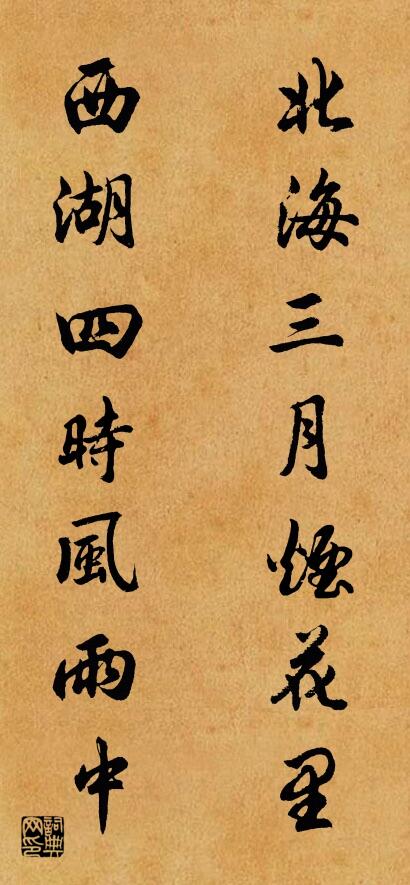 北海三月煙花里
西湖四時風雨中
詞典网印